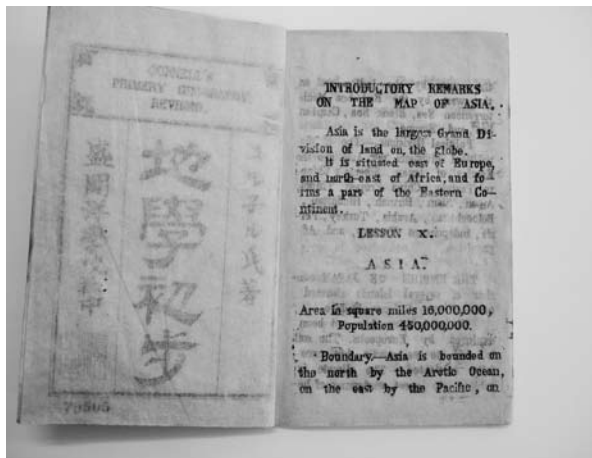 CORNELL'S
PRIMARY GEOGRAPHY
REVISED.
地學初步
79505
INTRODUCTORY REMARKS
ON THE MAP OF ASIA.
Asia is the largest Grand Di-
vision of land on, the globe.
It is situated east of Europe,
and north-east of Africa, and fo-
rms a part of the Eastern Co-
ntinent.
LESSON X.
ASIA.
Area in square miles 16,000,000,
Population 450,000,000.
Boundary.—Asia is bounded on
the north by the Arctic Ocean,
on the east by the Pacific, on